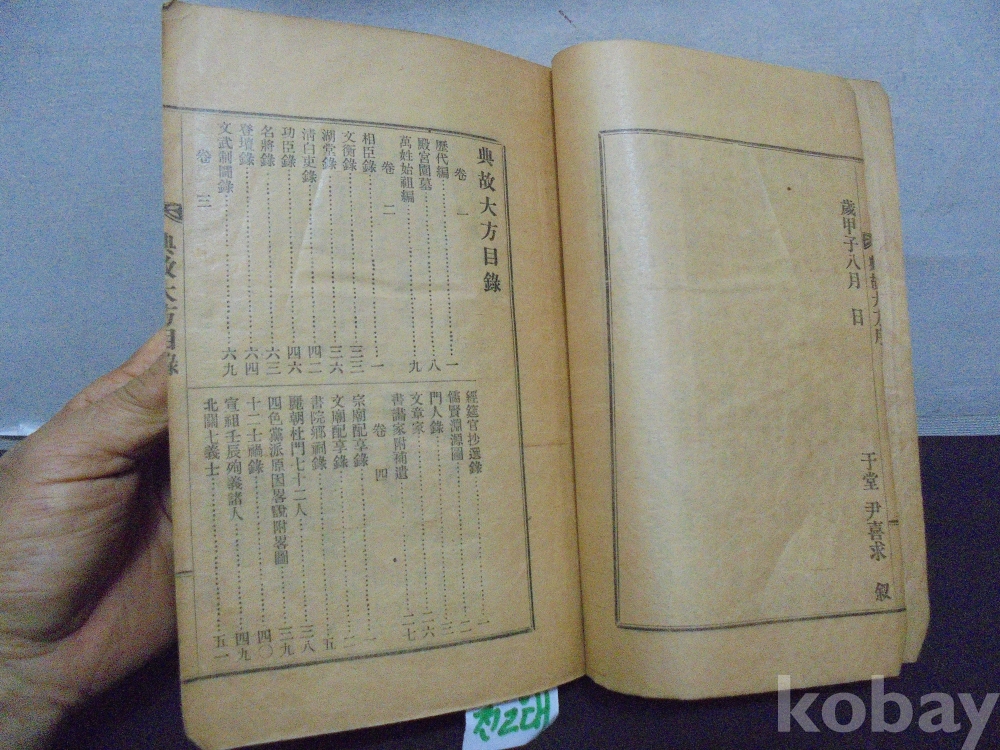 歲甲子八月 日
于堂 尹喜求 叙
典故大方目錄
卷一
歷代編 一
殿宮園墓 八
萬姓始祖編 九
卷二
相臣錄 一
文衡錄 三三
湖堂錄 三六
淸白吏錄 四二
功臣錄 四六
名將錄 六三
登壇錄 六四
文武制閫錄 六九
卷三
經筵官抄選錄 一
儒賢淵源圖 二
門人錄 三
文章家 二六
書畵家附補遺 二七
卷四
宗廟配享錄 一
文廟配享錄 二
書院鄕祠錄 五
麗朝杜門七十二人 三八
四色黨派原因畧附畧圖 三九
十二士禍錄 四〇
宣祖壬辰殉義諸人 四九
北關七義士 五一
典故大方目錄
전2대
kobay